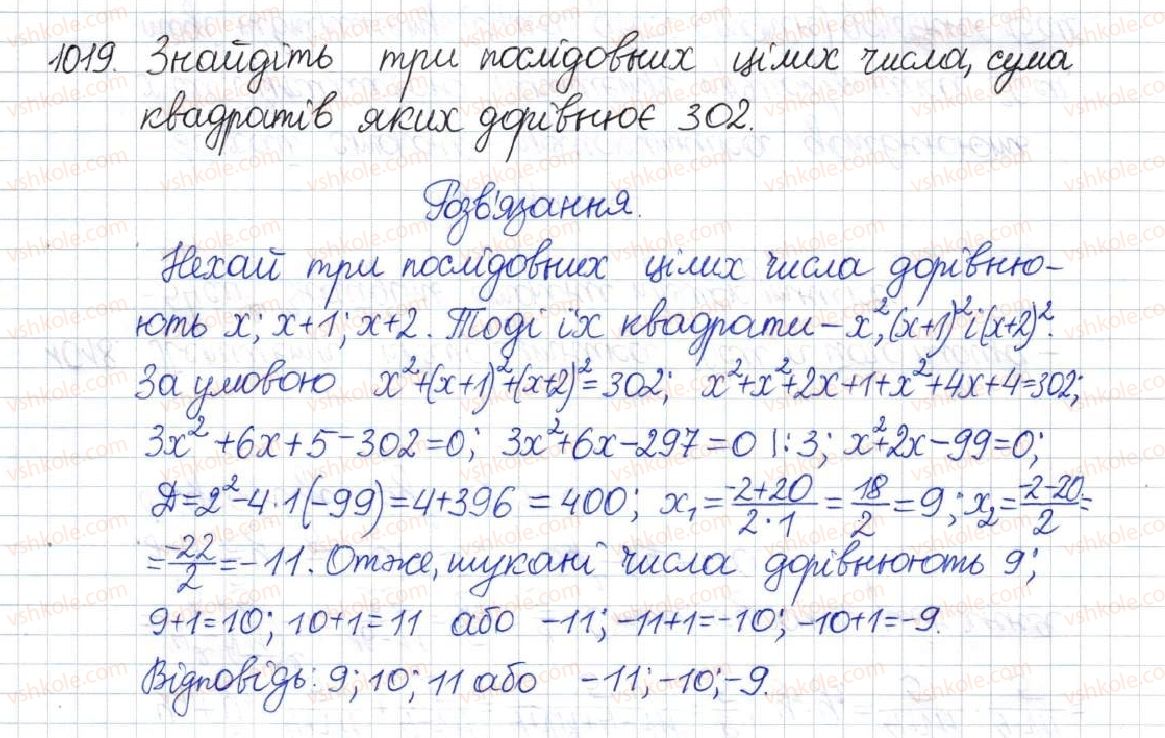 1019. Знайдіть три послідовних цілих числа, сума
квадратів яких дорівнює 302.
Розв'язання.
Нехай три послідовних цілих числа дорівню-
ють x; x+1; x+2. Тоді їх квадрати – x², (x+1)² і (x+2)².
За умовою x²+(x+1)²+(x+2)²=302; x²+x²+2x+1+x²+4x+4=302;
3x²+6x+5-302=0; 3x²+6x-297=0 |:3; x²+2x-99=0;
Д=2²-4·1(-99)=4+396=400; x₁=(-2+20)/(2·1)=18/2=9; x₂=(-2-20)/2=
=-22/2=-11. Отже, шукані числа дорівнюють 9;
9+1=10; 10+1=11 або -11; -11+1=-10; -10+1=-9.
Відповідь: 9; 10; 11 або -11; -10; -9.